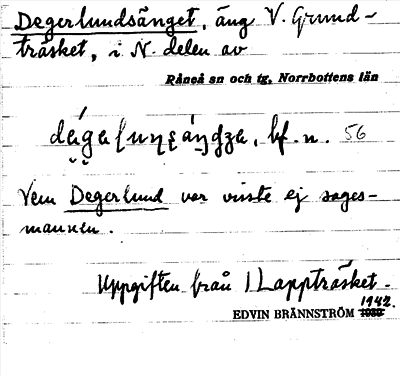 Degerlundsänget, äng V. Grund-
träsket, i N. delen av
Råneå sn och tg, Norrbottens län
bf. n. 56
Vem Degerlund var visste ej sages-
mannen.
Uppgiften från 1 Lappträsket.
1942.
EDVIN BRÄNNSTRÖM 1939